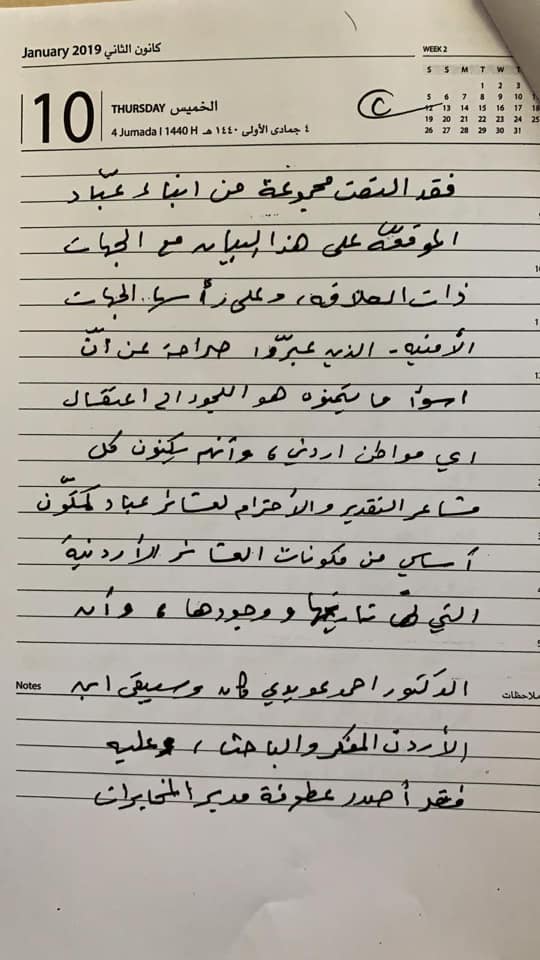 January 2019 كانون الثاني
WEEK 2
S S M T W T
1 2 3
5 6 7 8 9 10 11
12 13 14 15 16 17 18
19 20 21 22 23 24 25
26 27 28 29 30 31
10
THURSDAY الخميس
4 Jumada I 1440 H ٤ جمادى الأولى ١٤٤٠ هـ
فقد التقت مجموعة من ابناء عبّاد
الموقعة على هذا البيان مع الجهات
ذات العلاقه، وعلى رأسها الجهات
الأمنيه - الذين عبّروا صراحة عن أنّ
اسوأ ما يتمنونه هو اللجوء الى اعتقال
اي مواطن اردني، وأنهم يكِنّون كل
مشاعر التقدير والأحترام لعشائر عباد كمكّون
أساسي من مكونات العشائر الأردنية
التي لها تاريخها ووجودها، وأن
Notes
ملاحظات
الدكتور احمد عويدي كان وسيبقى ابن
الأردن المفكر والباحث، وعليه
فقد أصدر عطوفة مدير المخابرات